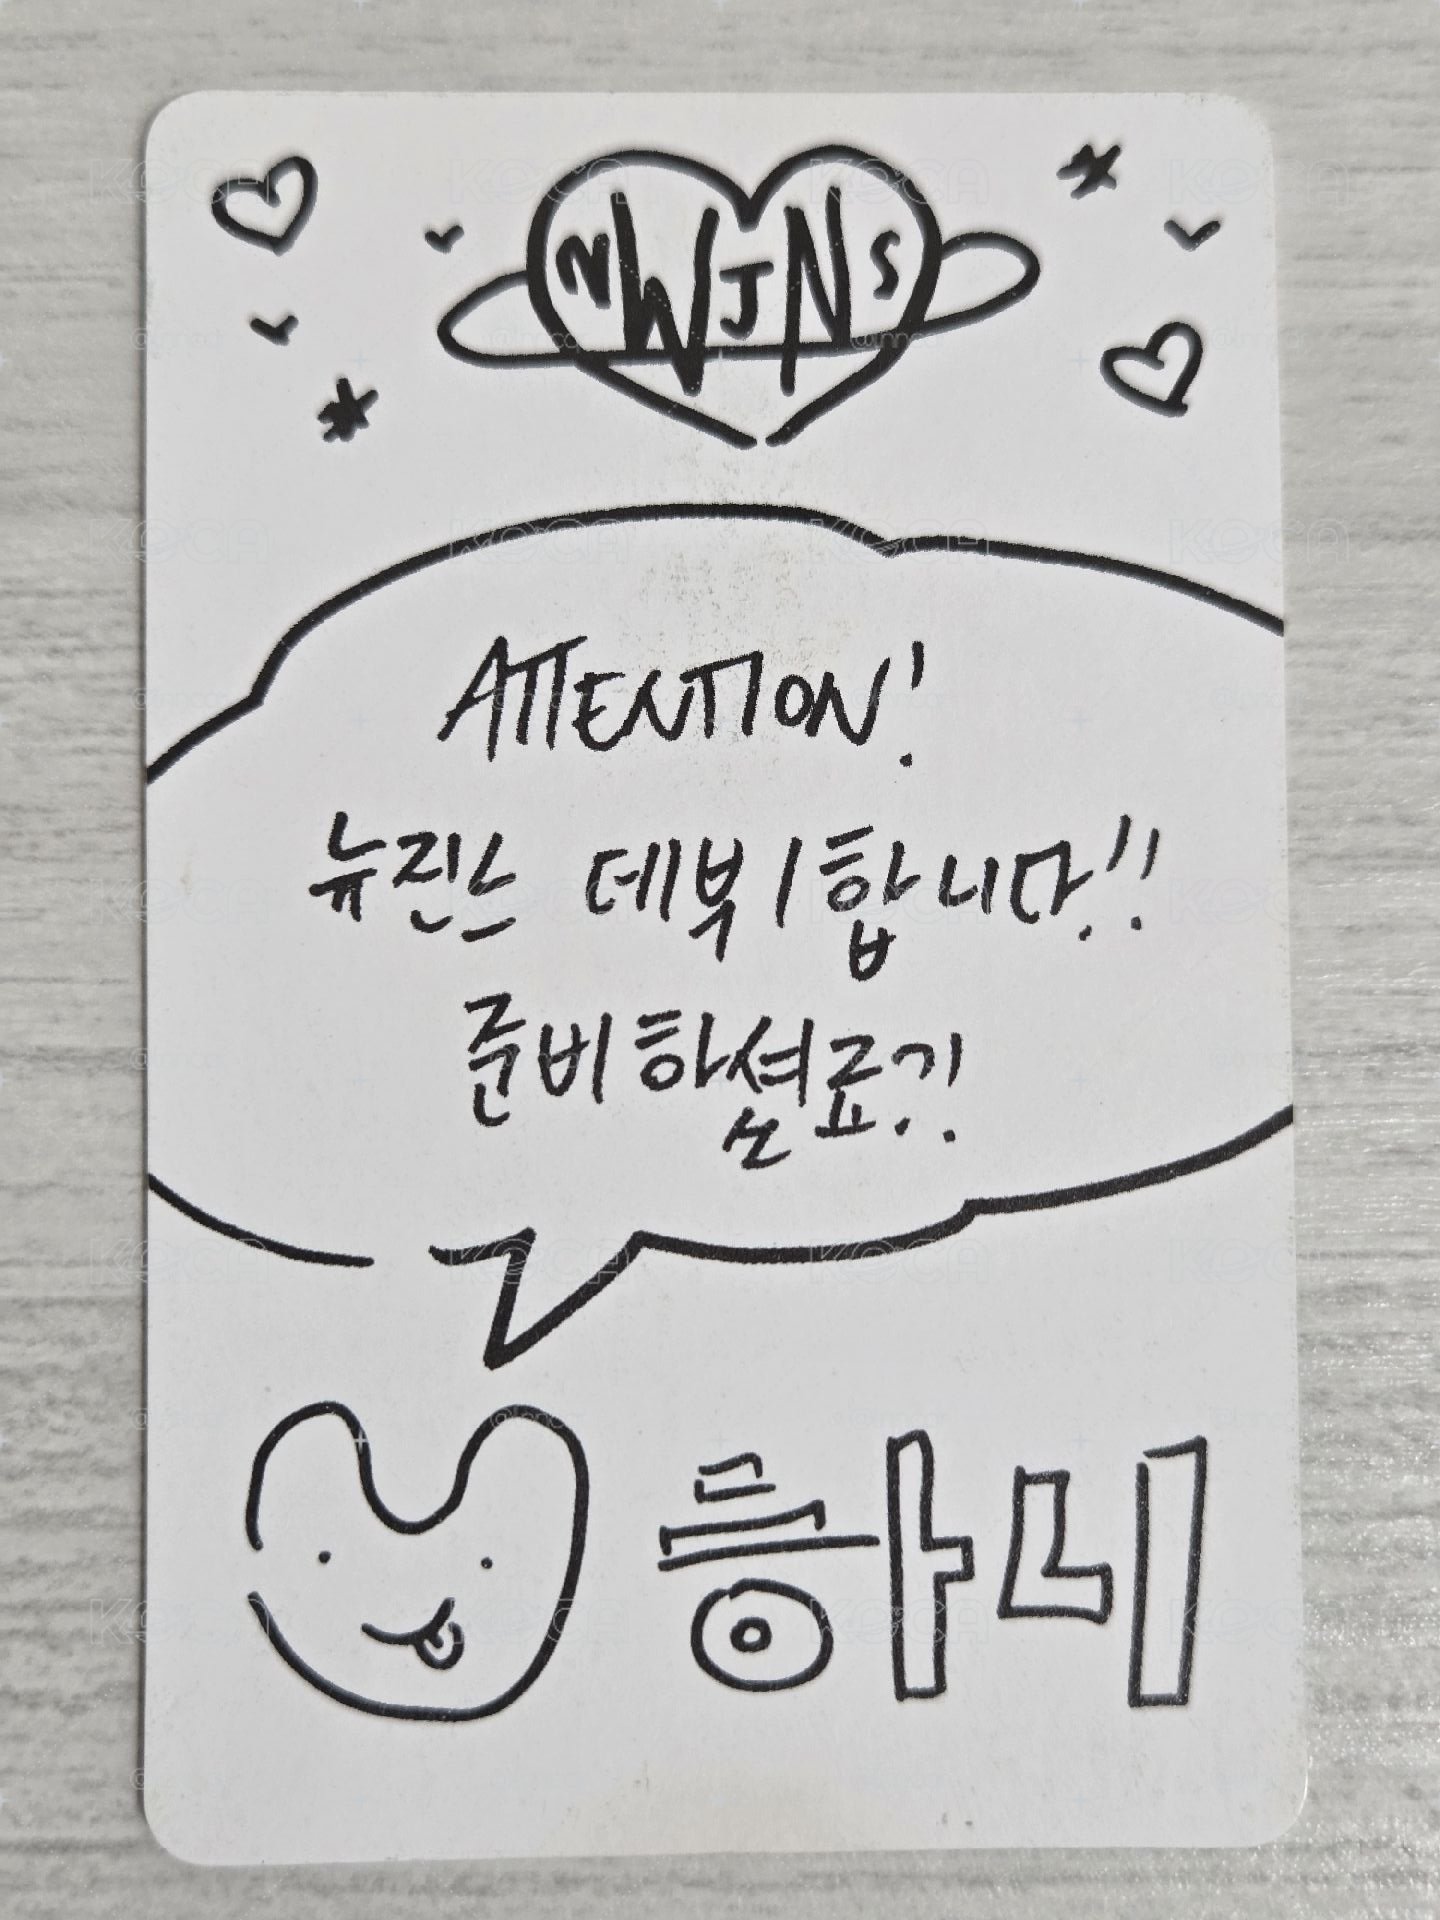 NWJNS
ATTENTION!
뉴진스 데뷔합니다!!
준비하셨죠?!
하니
KOCA